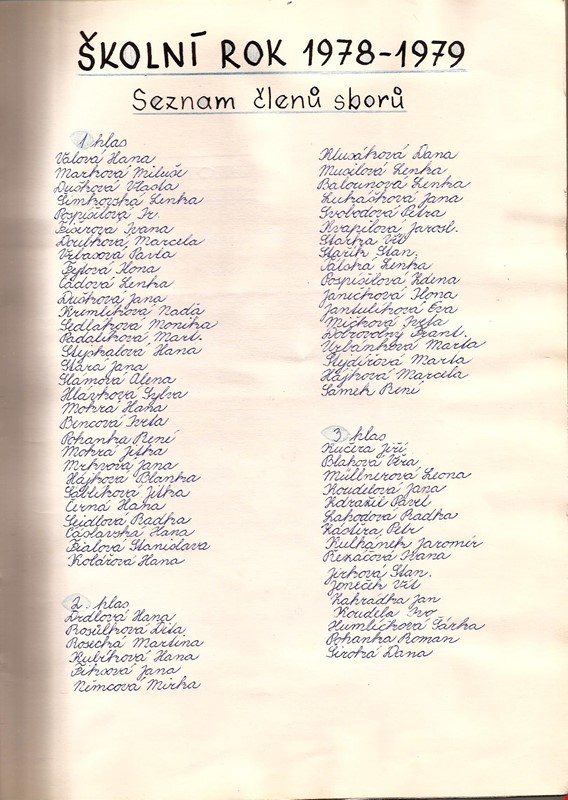 ŠKOLNÍ ROK 1978-1979
Seznam členů sborů
1 hlas
Valová Hana
Marková Miluše
Dušková Vlasta
Šimkovská Lenka
Pospíšilová Ir.
Fišerová Ivana
Doubková Marcela
Vrbasová Pavla
Fejtová Ilona
Čadová Lenka
Dušková Jana
Kremlíková Naďa
Sedláková Monika
Padalíková Mart.
Štephalová Hana
Stará Jana
Slámová Alena
Hlázková Sylva
Mokrá Hana
Bencová Iveta
Pohanka René
Mokrá Jitka
Mrkvová Jana
Hájková Blanka
Sablíková Jitka
Černá Hana
Seidlová Radka
Čáslavská Hana
Fialová Stanislava
Kolářová Hana
2. hlas
Drdlová Hana
Rosůlková Dita
Rosická Martina
Kubíková Hana
Jana
Němcová Mirka
Klusáková Dana
Musilová Lenka
Balounová Lenka
Lukášková Jana
Svobodová Petra
Kvapilová Jarosl.
Starka Vít
Stařík Stan.
Lenka
Pospíšilová Zdena
Janíčková Ilona
Jantulíková Eva
Mičková Iveta
Dobrovolný Frant.
Urbánková Marta
Šlydířová Marta
Hájková Marcela
Šámek René
3 hlas
Kučera Jiří
Blahová Věra
Müllnerová Leona
Koudelová Jana
Zdražil Pavel
Lahodová Radka
Částira Petr
Kulhánek Jaromír
Řezáčová Ivana
Jirková Stan.
Joneček Vít
Zahradka Jan
Koudela Ivo
Humlíčková Šárka
Pohanka Roman
Široká Dana